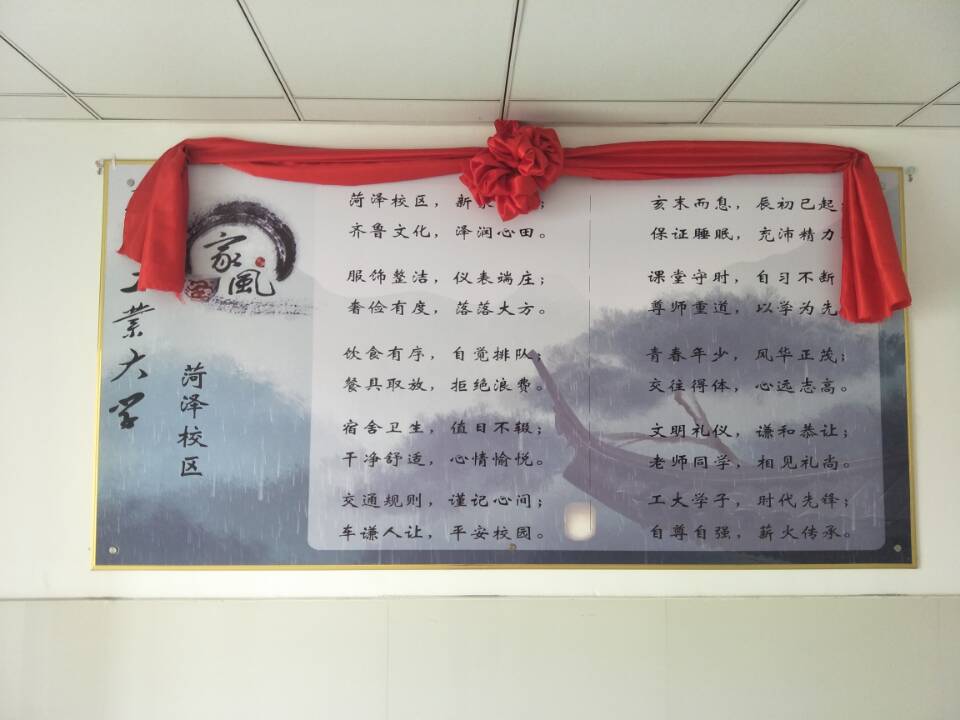 家風
工業大学
菏泽校区
菏泽校区，新
齐鲁文化，泽润心田。
服饰整洁，仪表端庄；
奢俭有度，落落大方。
饮食有序，自觉排队；
餐具取放，拒绝浪费。
宿舍卫生，值日不辍；
干净舒适，心情愉悦。
交通规则，谨记心间；
车谦人让，平安校园。
亥末而息，辰初已起；
保证睡眠，充沛精力
课堂守时，自习不断
尊师重道，以学为先
青春年少，风华正茂；
交往得体，心远志高。
文明礼仪，谦和恭让；
老师同学，相见礼尚。
工大学子，时代先锋；
自尊自强，薪火传承。